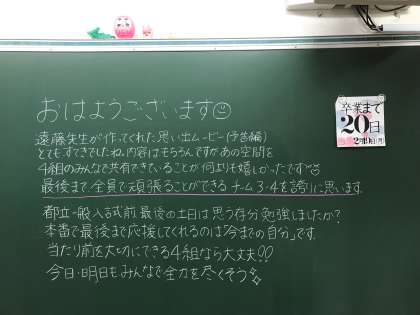 おはようございます☺
遠藤先生が作ってくれた思い出ムービー(予告編)
とてもすてきでしたね。内容はもちろんですがあの空間を
4組のみんなで共有できていることが何よりも嬉しかったです
最後まで全員で頑張ることができるチーム3-4を誇りに思います。
都立一般入試前、最後の土日は思う存分勉強しましたか?
本番で最後まで応援してくれるのは「今までの自分」です。
当たり前を大切にできる4組なら大丈夫!!
今日・明日もみんなで全力を尽くそう
卒業まで
20日